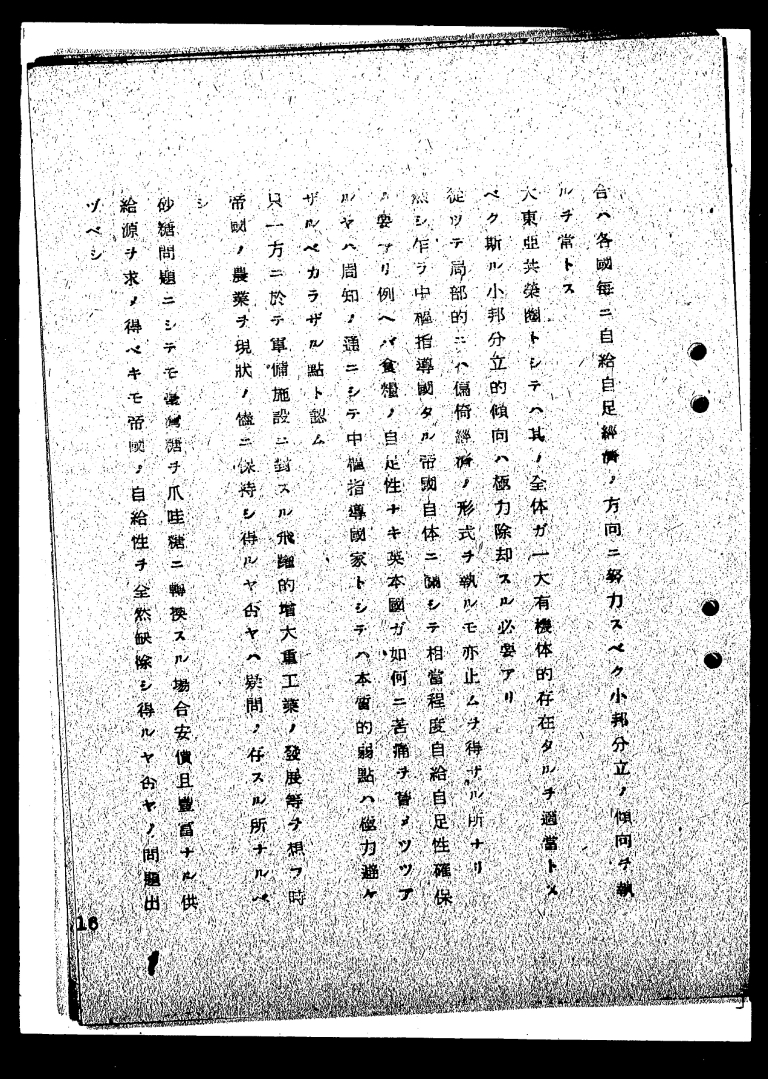 合ハ各國毎ニ自給自足經濟ノ方向ニ努力スベク小邦分立ノ傾向ヲ執
ルヲ當トス
大東亞共榮圈トシテハ其ノ全体ガ一大有機体的存在タルヲ適當トス
ベク斯ル小邦分立的傾向ハ極力除却スル必要アリ
從ツテ局部的ニハ偏倚經濟ノ形式ヲ執ルモ亦止ムヲ得ザル所ナリ
然シ乍ラ中樞指導國タル帝國自体ニ關シテ相當程度自給自足性確保
ノ要アリ例ヘバ食糧ノ自足性ナキ英本國ガ如何ニ苦痛ヲ嘗メツツア
ルヤハ周知ノ通ニシテ中樞指導國家トシテハ本質的弱點ハ極力避ケ
ザルベカラザル點ト認ム
只一方ニ於テ軍備施設ニ對スル飛躍的增大重工業ノ發展等ヲ想フ時
帝國ノ農業ヲ現狀ノ儘ニ保持シ得ルヤ否ヤハ疑問ノ存スル所ナルベ
シ
砂糖問題ニシテモ臺灣糖ヲ爪哇糖ニ轉換スル場合安價且豐富ナル供
給源ヲ求メ得ベキモ帝國ノ自給性ヲ全然缺除シ得ルヤ否ヤノ問題出
ヅベシ
16